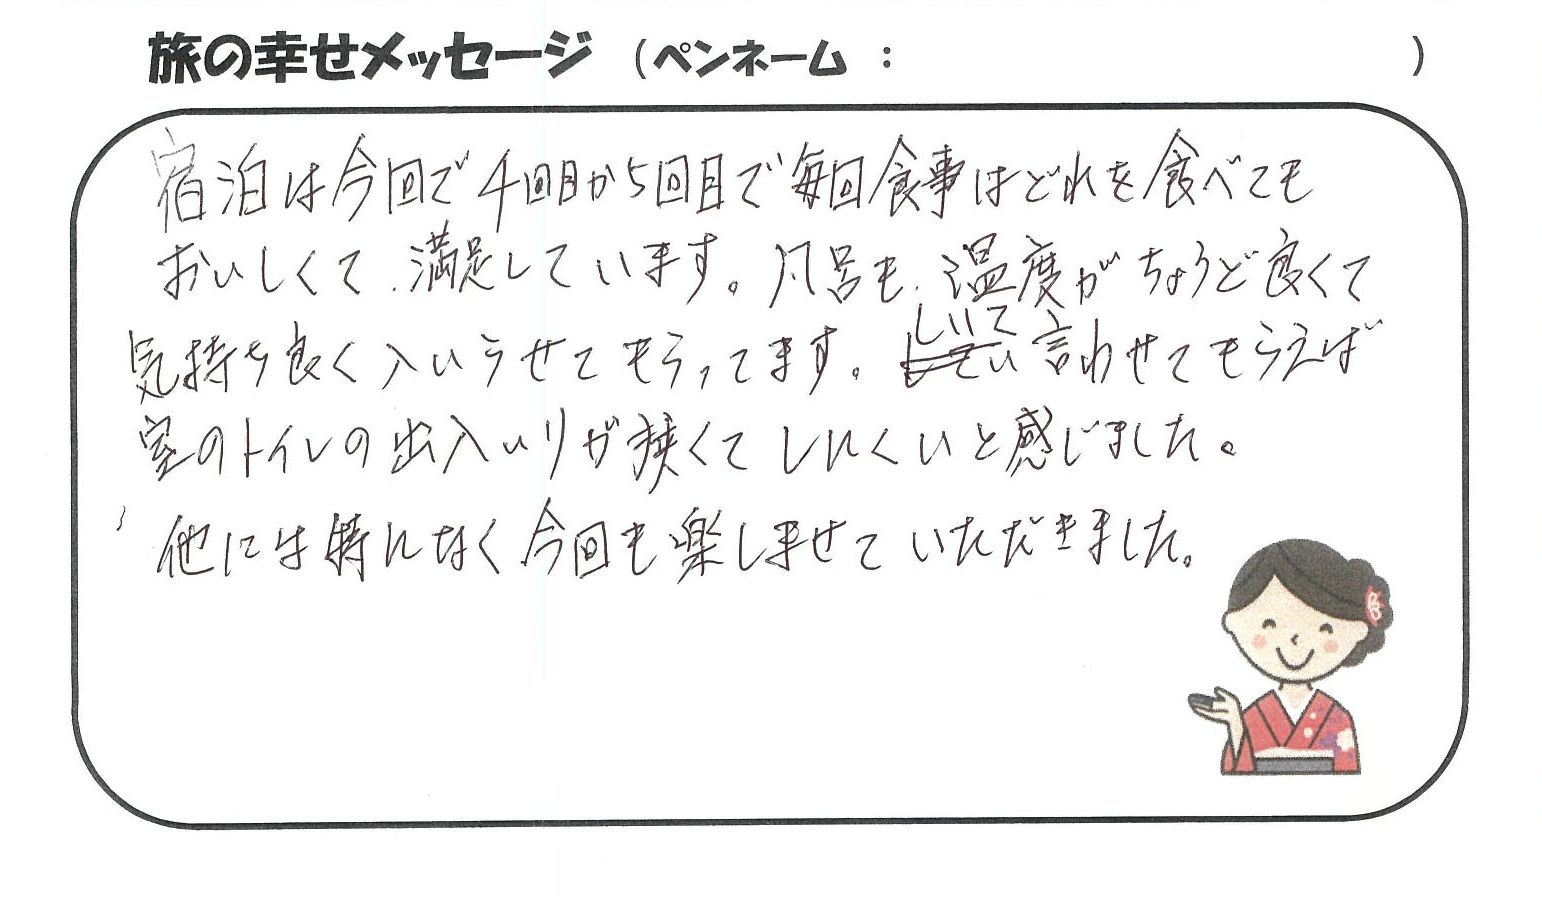 旅の幸せメッセージ (ペンネーム : )
宿泊は今回で4回目か5回目で毎回食事はどれを食べても
おいしくて、満足しています。風呂も、温度がちょうど良くて
気持ち良く入いらせてもらってます。しいて言わせてもらえば
室のトイレの出入いりが狭くてしにくいと感じました。
他には特になく今回も楽しませていただきました。